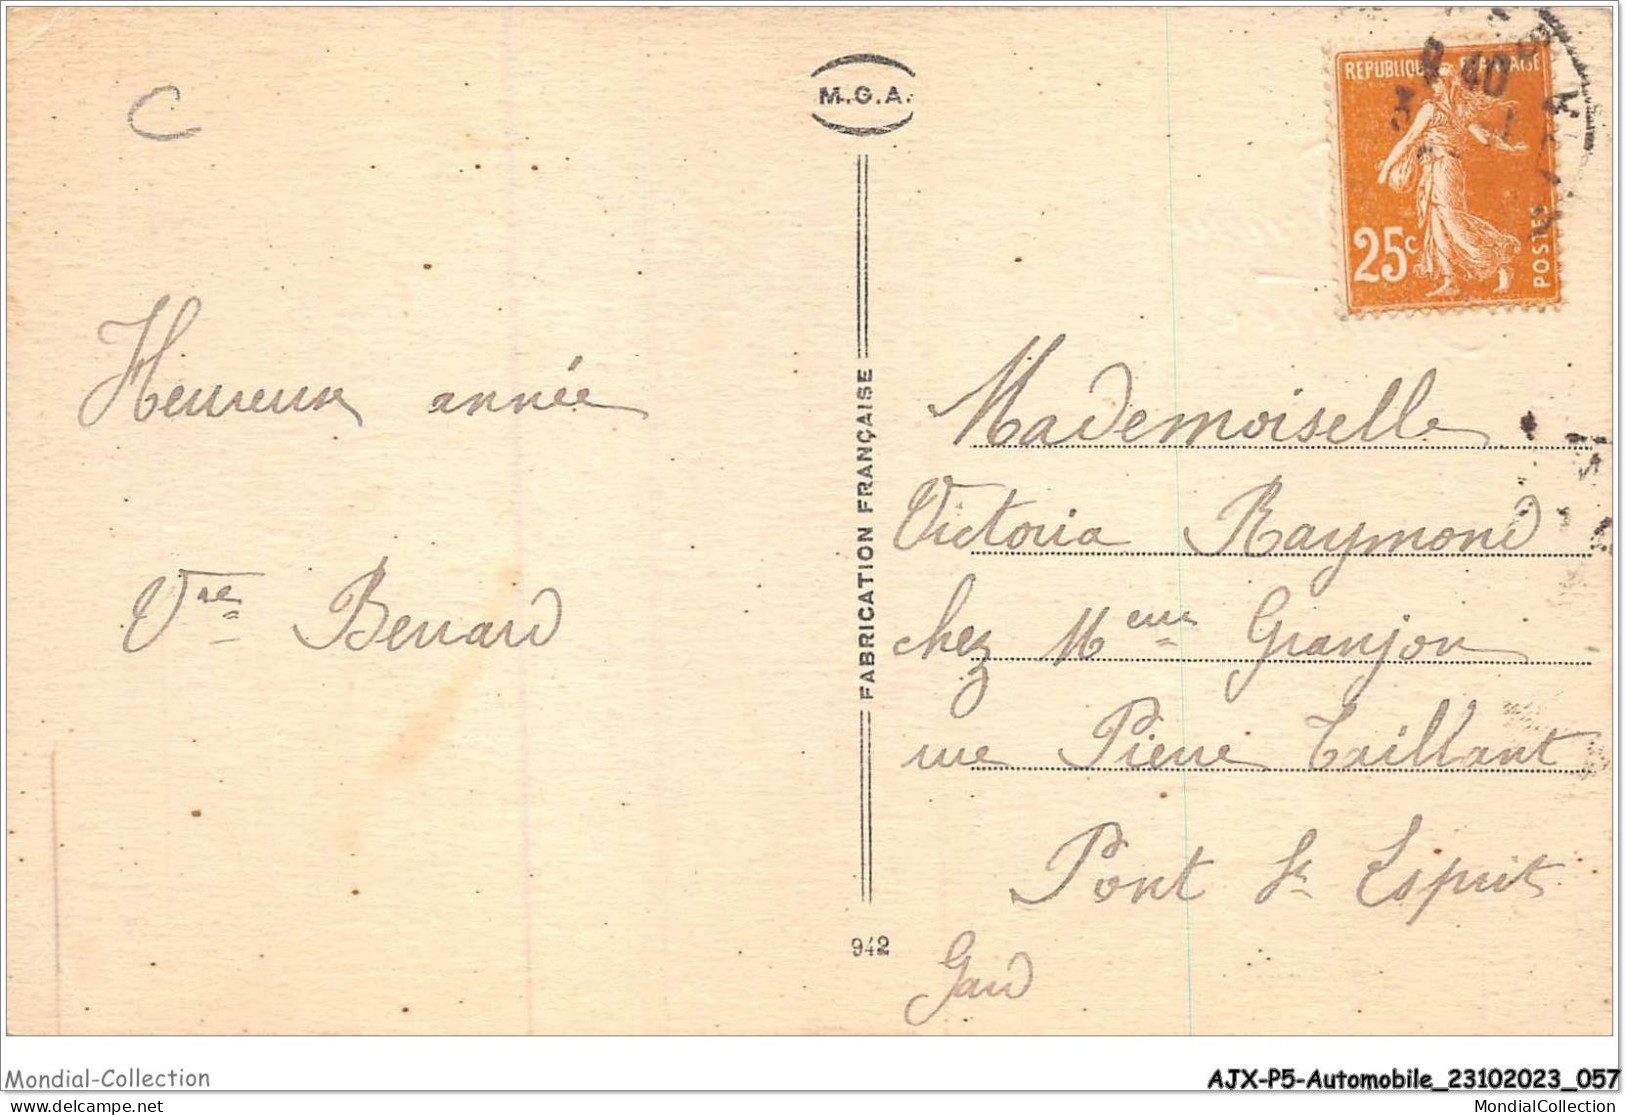 C
M.G.A.
REPUBLIQUE FRANÇAISE
25c
POSTES
Heureuse année
Vve Benard
FABRICATION FRANÇAISE
942
Mademoiselle
Victoria Raymond
chez Meme Granjon
rue Pierre Taillant
Pont St Esprit
Gard
Mondial-Collection
AJX-P5-Automobile_23102023_057
© mondial-collection.com
MondialCollection